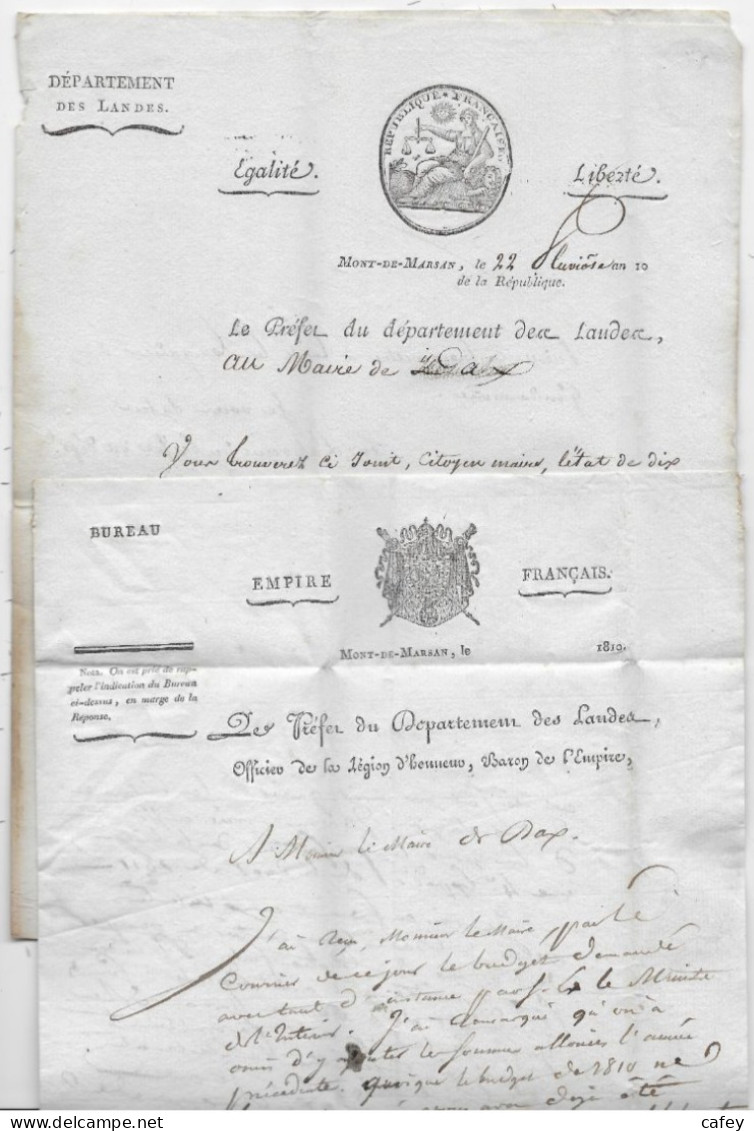 DÉPARTEMENT
DES LANDES.
RÉPUBLIQUE FRANÇAISE.
Egalité.
Liberté.
MONT-DE-MARSAN, le 22 Pluviôse an 10
de la République.
Le Préfet du département des Landes,
au Maire de Dax
Vous trouverez ci Joint, Citoyen maire, l'état de dix
BUREAU
EMPIRE FRANÇAIS.
MONT-DE-MARSAN, le 1810.
NOTA. On est prié de rap-
peler l'indication du Bureau
ci-dessus, en marge de la
Réponse.
Le Préfet du Département des Landes,
Officier de la Légion d'honneur, Baron de l'Empire,
A Monsieur le Maire de Dax.
J'ai reçu, Monsieur le Maire, par le
Courrier de ce jour le budget demandé
avec tant d'instance par S. Ex le Ministre
de l'Interieur. J'ai remarqué qu'on a
omis d'y les sommes allouées l'année
précédente. quoique le budget de 1810 ne
déjà été
cafey